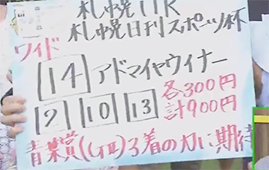 札幌11R
札幌日刊スポーツ杯
ワイド
14 アドマイヤウイナー
2 10 13
各300円
計900円
青葉賞(GII)3着の力に期待